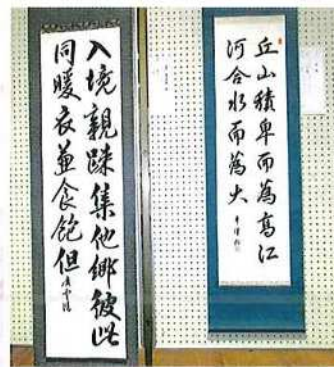 丘山積卑而為高江
河合水而為大
入境親踈集他郷彼此
同暖衣兼食飽但